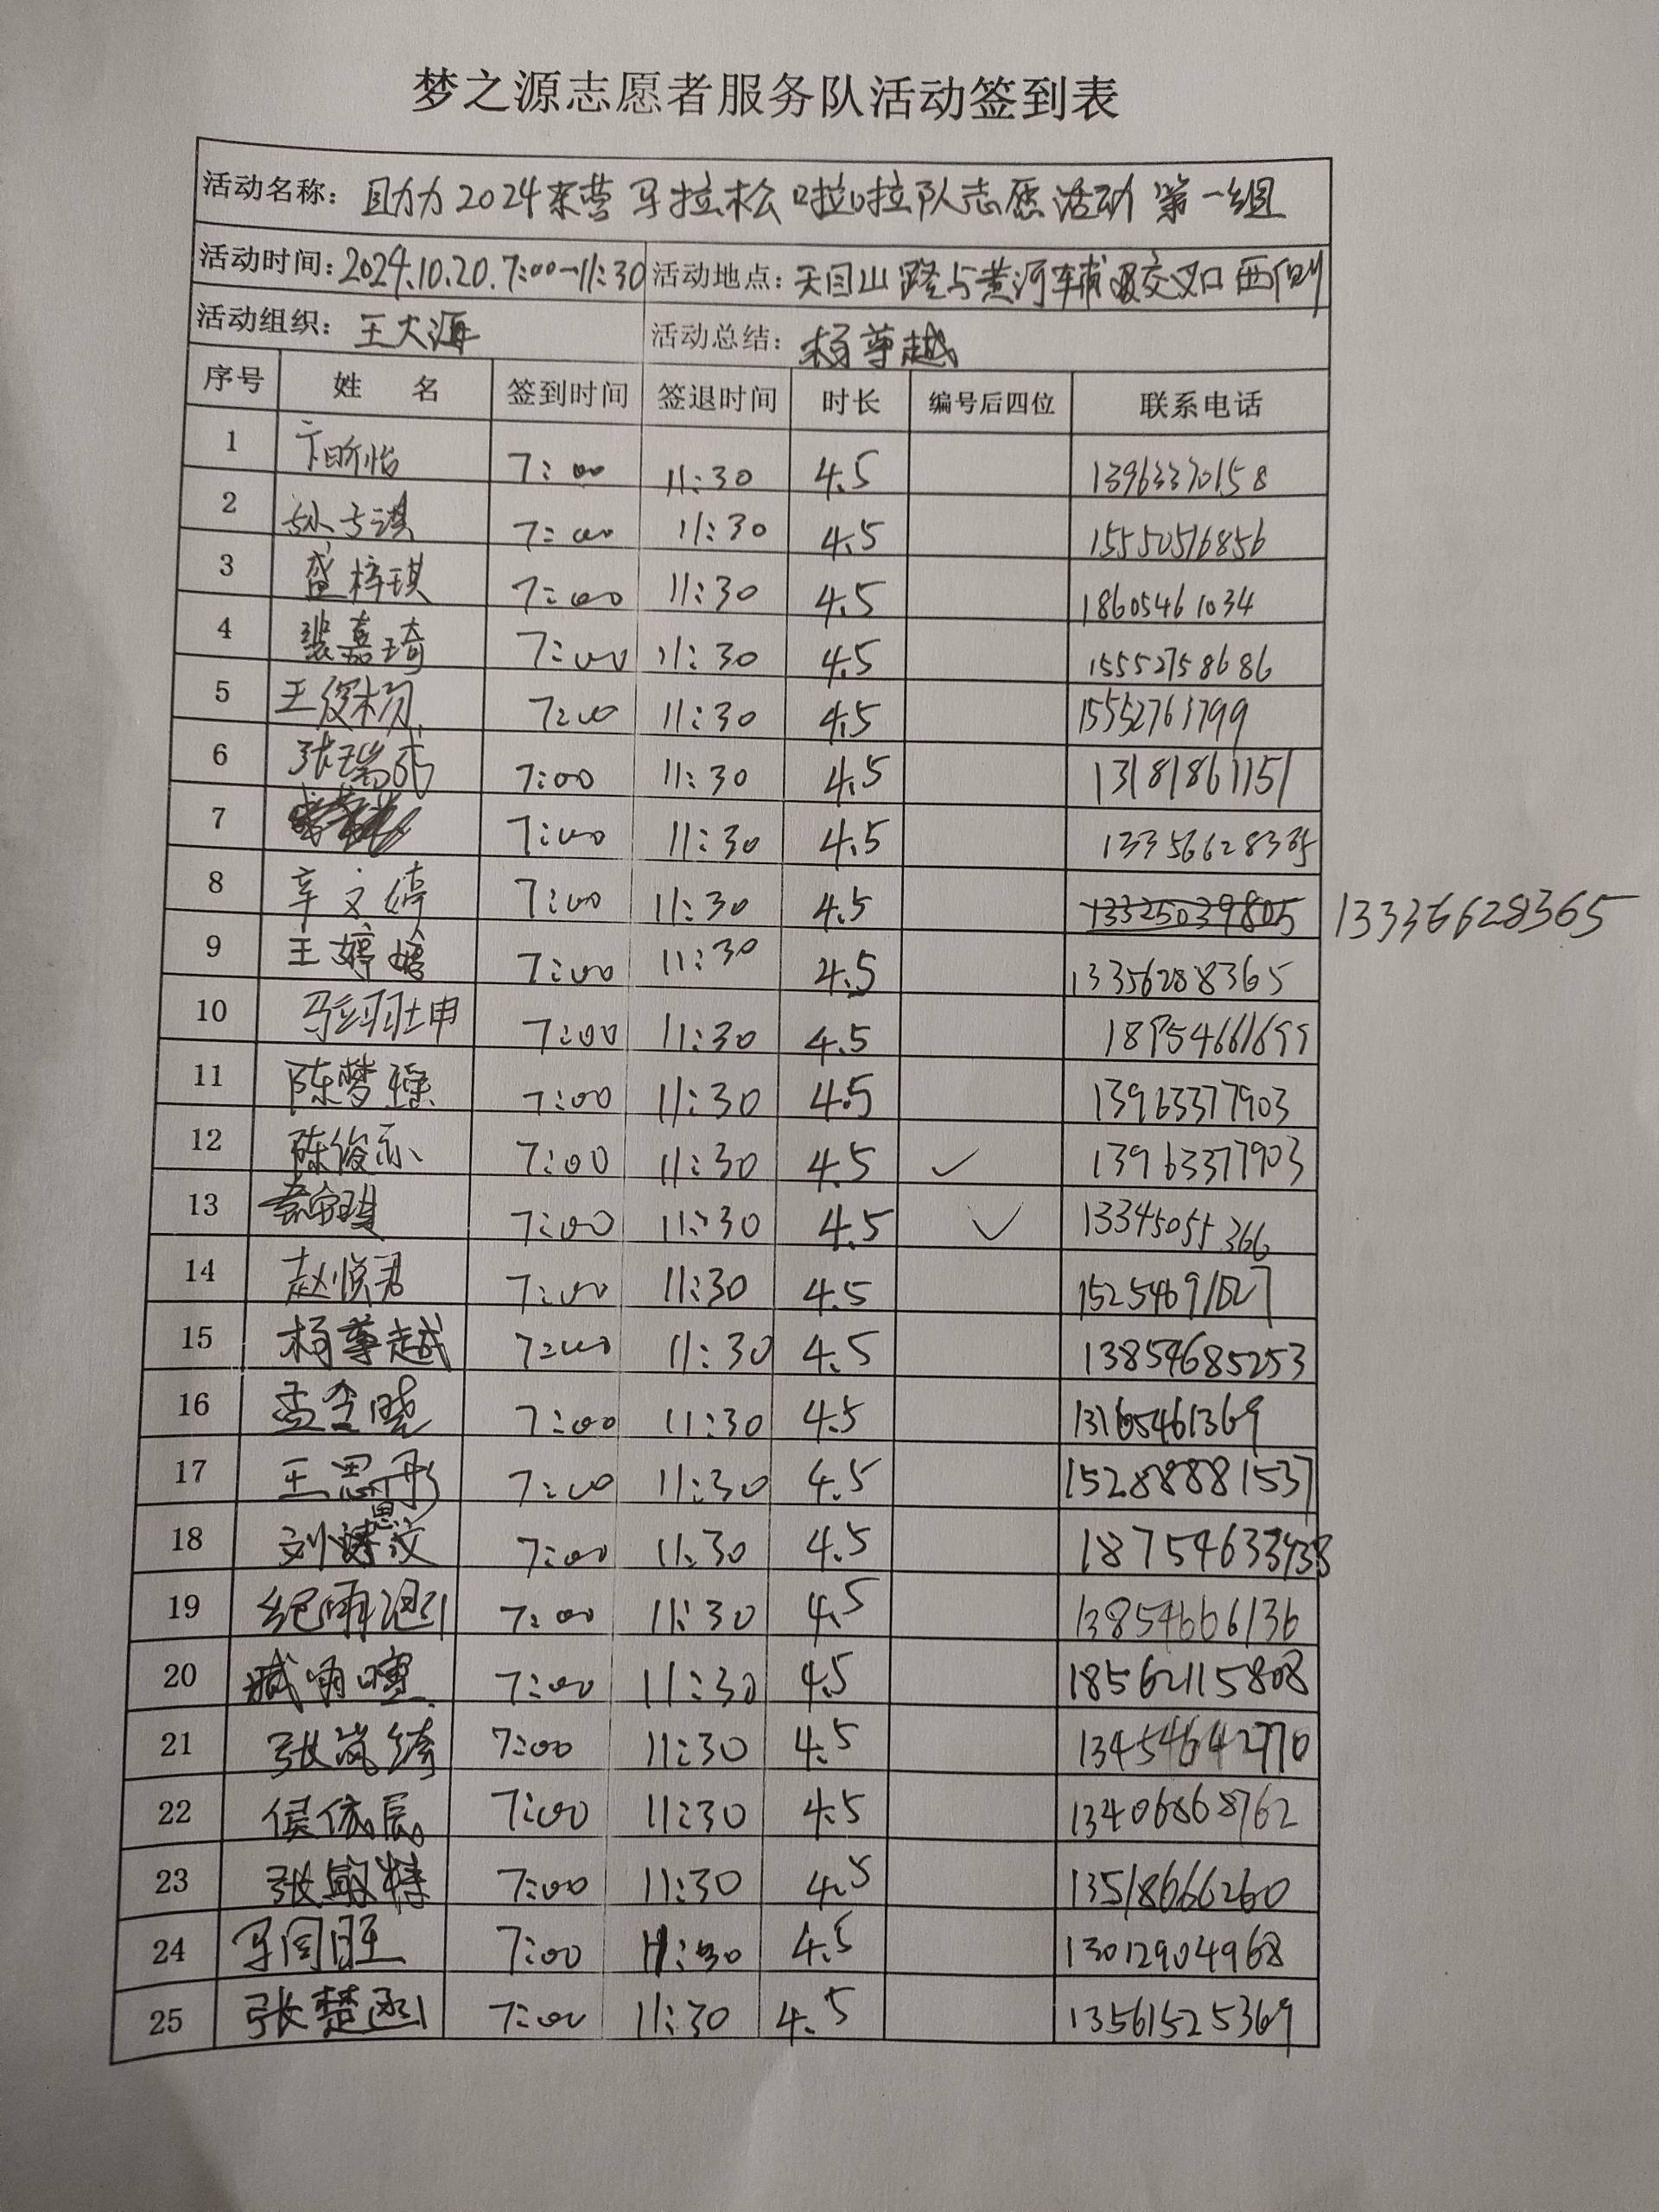 梦之源志愿者服务队活动签到表
活动名称：助力2024东营马拉松啦啦队志愿活动 第一组
活动时间：2024.10.20.7:00-11:30 活动地点：天目山路与黄河辅路交叉口西侧
活动组织：王大海 活动总结：杨尊越
序号 姓 名 签到时间 签退时间 时长 编号后四位 联系电话
1 卞昕怡 7:00 11:30 4.5 13963370158
2 7:00 11:30 4.5 15550516856
3 盛梓琪 7:00 11:30 4.5 18605461034
4 裴嘉琦 7:00 11:30 4.5 15552758686
5 王俊杨 7:00 11:30 4.5 15552761799
6 7:00 11:30 4.5 13181861151
7 7:00 11:30 4.5
8 辛文婷 7:00 11:30 4.5 13325039805 13336628365
9 王婷婷 7:00 11:30 4.5 13356288365
10 7:00 11:30 4.5 18954661699
11 陈梦瑶 7:00 11:30 4.5 13963377903
12 7:00 11:30 4.5 ✓ 13963377903
13 7:00 11:30 4.5 ✓ 13345055366
14 赵悦君 7:00 11:30 4.5
15 杨尊越 7:00 11:30 4.5 13854685253
16 孟金晓 7:00 11:30 4.5 13165461369
17 王思彤 7:00 11:30 4.5 15288881537
18 刘思汶 7:00 11:30 4.5
19 纪雨涵 7:00 11:30 4.5 13854666136
20 臧雨暄 7:00 11:30 4.5 18562115808
21 张岚绮 7:00 11:30 4.5 13454642770
22 侯依辰 7:00 11:30 4.5 13406868762
23 7:00 11:30 4.5 13518666260
24 马同旺 7:00 11:30 4.5 13012904968
25 张楚函 7:00 11:30 4.5 13561525369